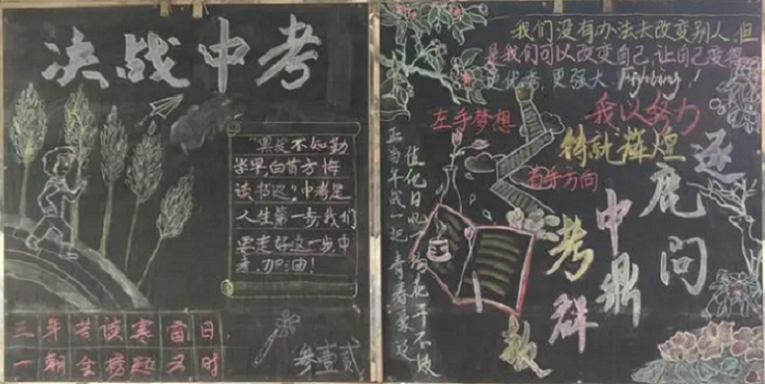 决战中考
"黑发不知勤
学早白首方悔
读书迟"中考是
人生第一步我们
要走好这一步中
考,加油!
三年苦读寒窗日
一朝金榜题名时
叁壹贰
我们没有办法去改变别人,但
是我们可以改变自己,让自己变得
更优秀,更强大,Fighting!
左手梦想
右手方向
我以努力
铸就辉煌
逐鹿问
中鼎
考群